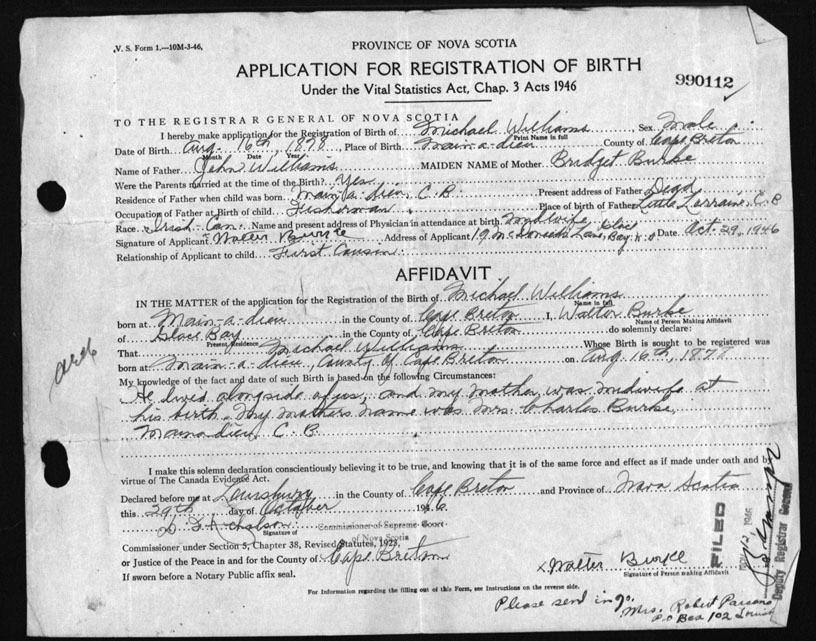 V. S. Form 1.—10M-3-46.
PROVINCE OF NOVA SCOTIA
APPLICATION FOR REGISTRATION OF BIRTH
Under the Vital Statistics Act, Chap. 3 Acts 1946
990112
TO THE REGISTRAR GENERAL OF NOVA SCOTIA
I hereby make application for the Registration of Birth of Michael Williams Sex Male
Print Name in full
Date of Birth Aug. 16th, 1878 Place of Birth Main-a-dieu County of Cape Breton
Month Date Year
Name of Father John Williams MAIDEN NAME of Mother Bridget Burke
Were the Parents married at the time of the Birth? Yes
Residence of Father when child was born Main-a-dieu, C.B Present address of Father Dead
Occupation of Father at Birth of child Fisherman Place of birth of Father Little Lorraine, C.B
Race Irish-Can. Name and present address of Physician in attendance at birth Midwife
Signature of Applicant Walter Burke Address of Applicant 19 Lane, Glace Bay N.S Date Oct. 29, 1946
Relationship of Applicant to child First Cousin
AFFIDAVIT
IN THE MATTER of the application for the Registration of Birth of Michael Williams
Name in full
born at Main-a-dieu in the County of Cape Breton I, Walter Burke
Name of Person Making Affidavit
of Glace Bay in the County of Cape Breton do solemnly declare:
Present residence
That Michael Williams Whose Birth is sought to be registered was
born at Main-a-dieu, County of Cape Breton on Aug 16th, 1878
My knowledge of the fact and date of such Birth is based on the following Circumstances:
He lived alongside of us, and my Mother was midwife at
his birth. My mothers name was Mrs. Charles Burke,
Mainadieu, C.B
I make this solemn declaration conscientiously believing it to be true, and knowing that it is of the same force and effect as if made under oath and by
virtue of The Canada Evidence Act.
Declared before me at Louisburg in the County of Cape Breton and Province of Nova Scotia
this 29th day of October 1946
Signature of
Commissioner of Supreme Court
of Nova Scotia
Commissioner under Section 5, Chapter 38, Revised Statutes, 1923,
or Justice of the Peace in and for the County of Cape Breton
If sworn before a Notary Public affix seal.
x Walter Burke
Signature of Person making Affidavit
FILED
1946
Deputy Registrar General
For Information regarding the filling out of this Form, see Instructions on the reverse side.
Please send in to.
Mrs. Robert Parsons
P.O Box 102